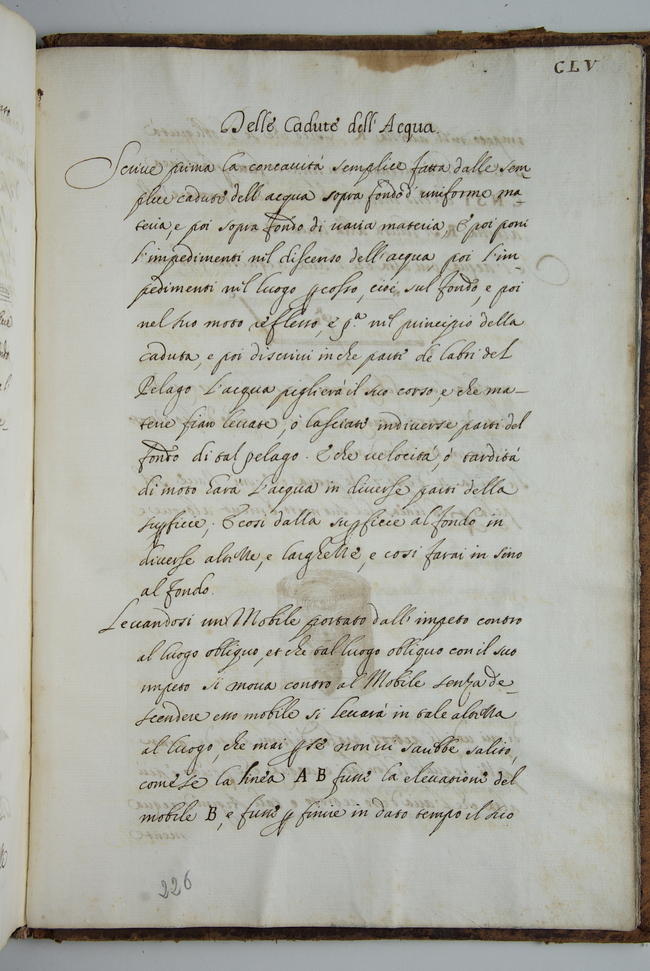 CLV
Delle Cadute dell'Acqua.
Scrive prima la concavità semplice fatta dalle sem-
plice cadute dell'acqua sopra fondo d'uniforme ma-
teria, e poi sopra fondo di varia materia, E poi poni
l'impedimenti nil discenso dell'acqua poi l'im-
pedimenti nil luogo pcosso, cioè sul fondo, e poi
nel suo moto reflesso, e pª. nil principio della
caduta, e poi discrivi in che parti de labri del
Pelago l'acqua piglierà il suo corso, e che ma-
terie sian levate, ò lasciate in diverse parti del
fondo di tal pelago. E che velocità, ò tardità
di moto harà l'acqua in diverse parti della
supficie, E così dalla supficie al fondo in
diverse altezze, e larghezze, e così farai in sino
al fondo.
Levandosi un Mobile portato dall'impeto contro
al luogo obliquo, et che tal luogo obliquo con il suo
impeto si mova contro al Mobile senza de-
scendere esso mobile si levarà in tale altezza
al luogo, che mai p se non vi sarebbe salito,
come se la linea A B fusse la elevatione del
mobile B, e fusse p finire in dato tempo il suo
226